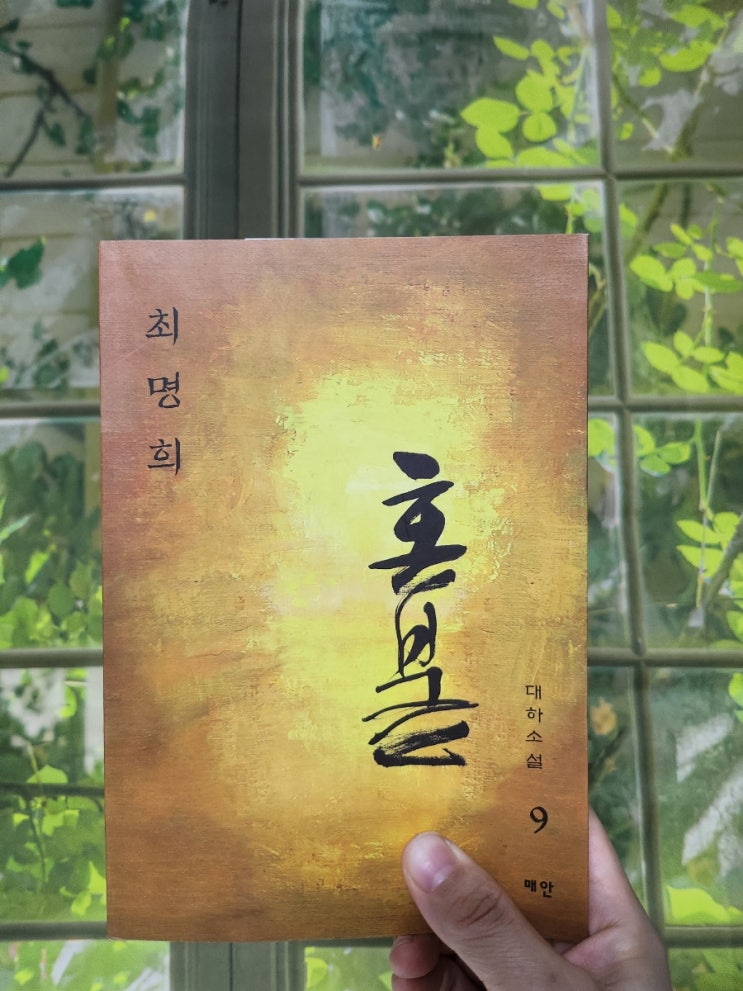 최명희
혼불
대하소설
9
매안